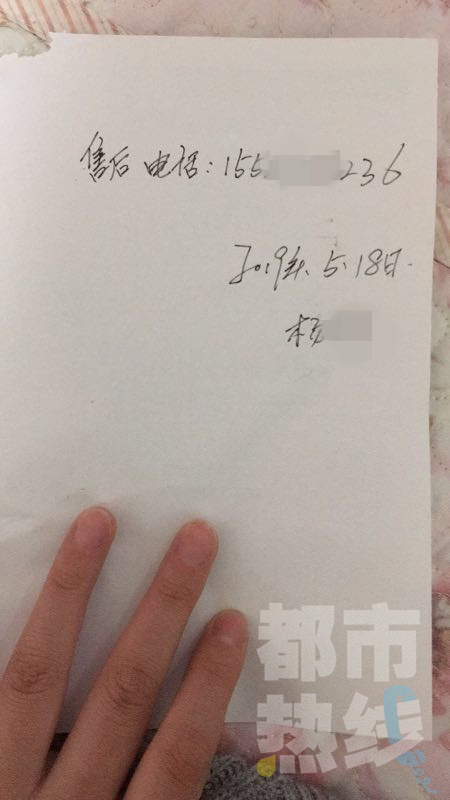 售后电话:155 236
2019年.5.18日.
杨
都市
热线